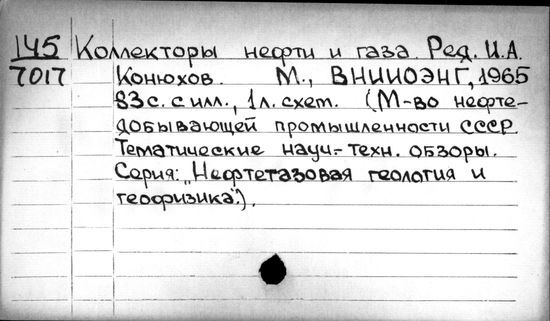 145 Коллекторы нефти и газа. Ред. И.А.
7017 Конюхов. М., ВНИИОЭНГ, 1965
83 с. с илл., 1 л. схем. (М-во нефте-
добывающей промышленности СССР.
Тематические науч.-техн. обзоры.
Серия: „Нефтегазовая геология и
геофизика").